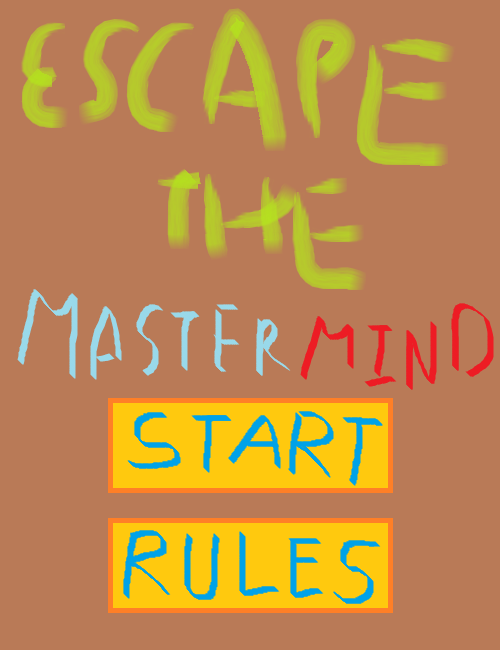 ESCAPE
THE
MASTERMIND
START
RULES